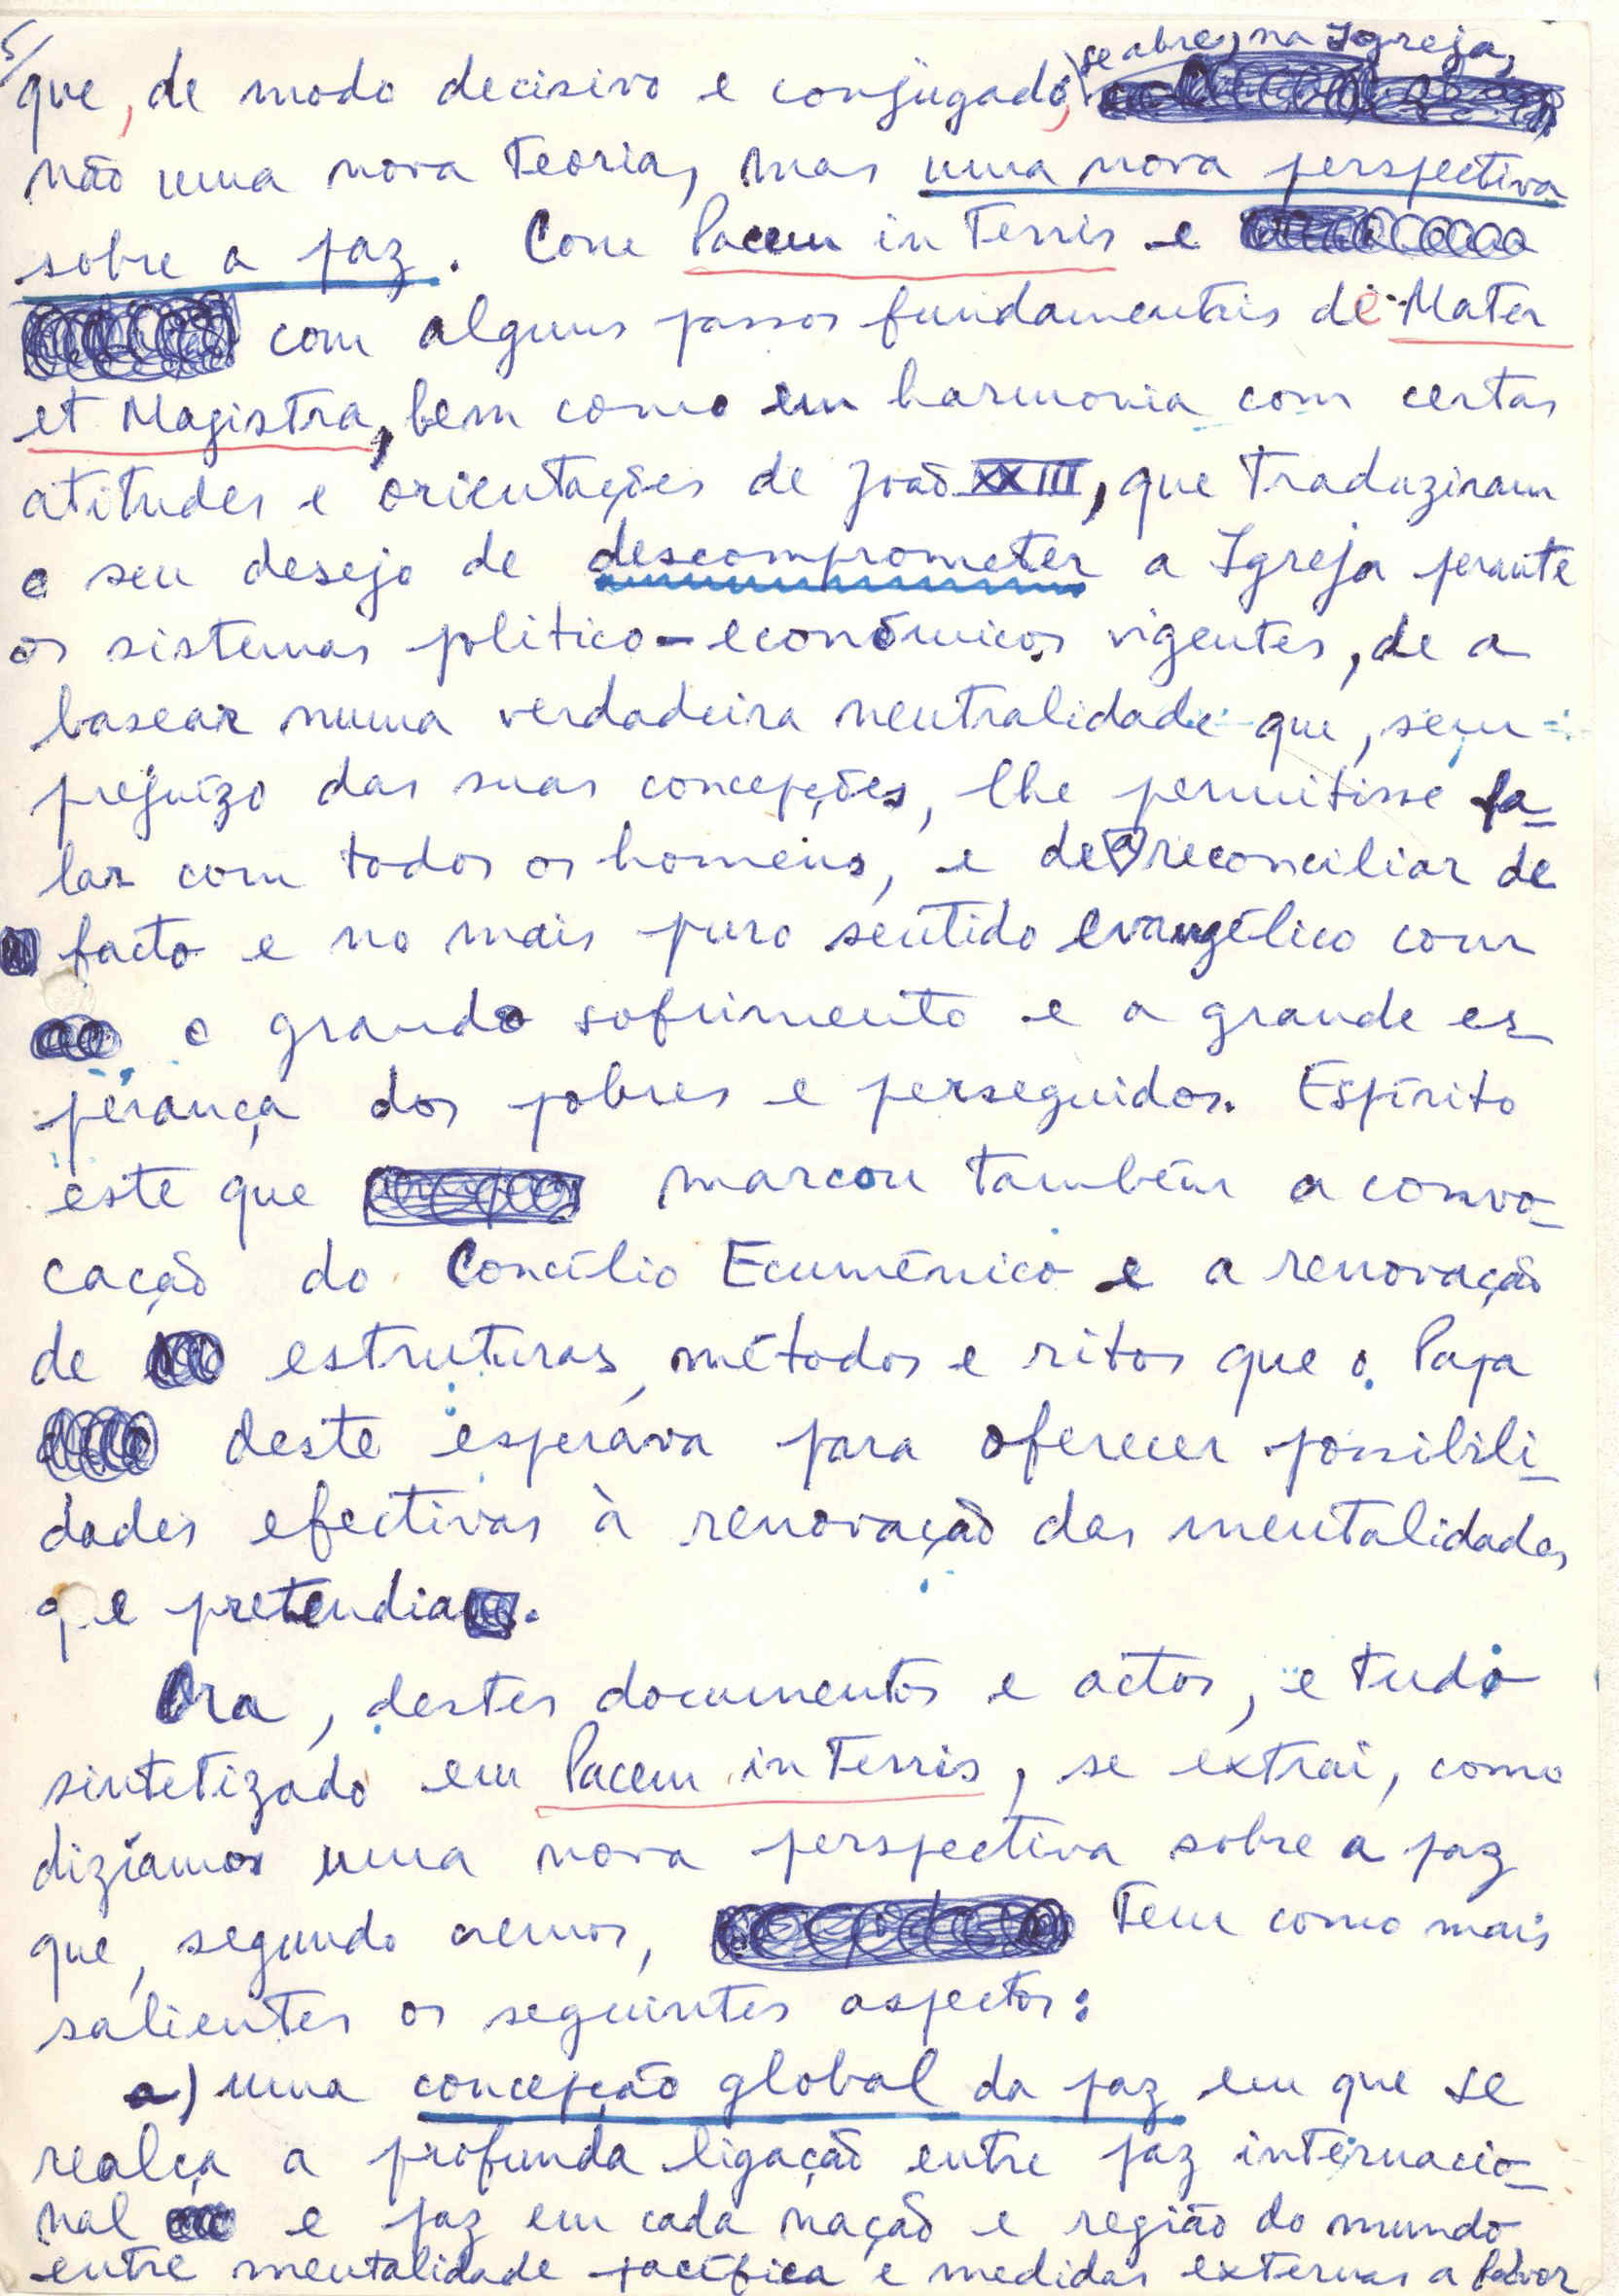 5/
se abre, na Igreja,
que, de modo decisivo e conjugado,
não uma nova teoria, mas uma nova perspectiva
sobre a paz. Com Pacem in Terris e
com alguns passos fundamentais de Mater
et Magistra, bem como em harmonia com certas
atitudes e orientações de João XXIII, que traduziram
o seu desejo de descomprometer a Igreja perante
os sistemas politico-económicos vigentes, de a
basear numa verdadeira neutralidade que, sem
prejuízo das suas concepções, lhe permitisse fa-
lar com todos os homens, e de a reconciliar de
facto e no mais puro sentido evangélico com
o grande sofrimento e a grande es
perança dos pobres e perseguidos. Espírito
este que marcou também a convo-
cação do Concílio Ecuménico e a renovação
de estruturas, métodos e ritos que o Papa
deste esperava para oferecer possibili-
dades efectivas à renovação das mentalidades
que pretendia.
Ora, destes documentos e actos, e tudo
sintetizado em Pacem in Terris, se extrai, como
dizíamos uma nova perspectiva sobre a paz
que, segundo cremos, tem como mais
salientes os seguintes aspectos:
a) uma concepção global da paz em que se
realça a profunda ligação entre paz internacio-
nal e paz em cada nação e região do mundo
entre mentalidade pacífica e medidas externas a favor